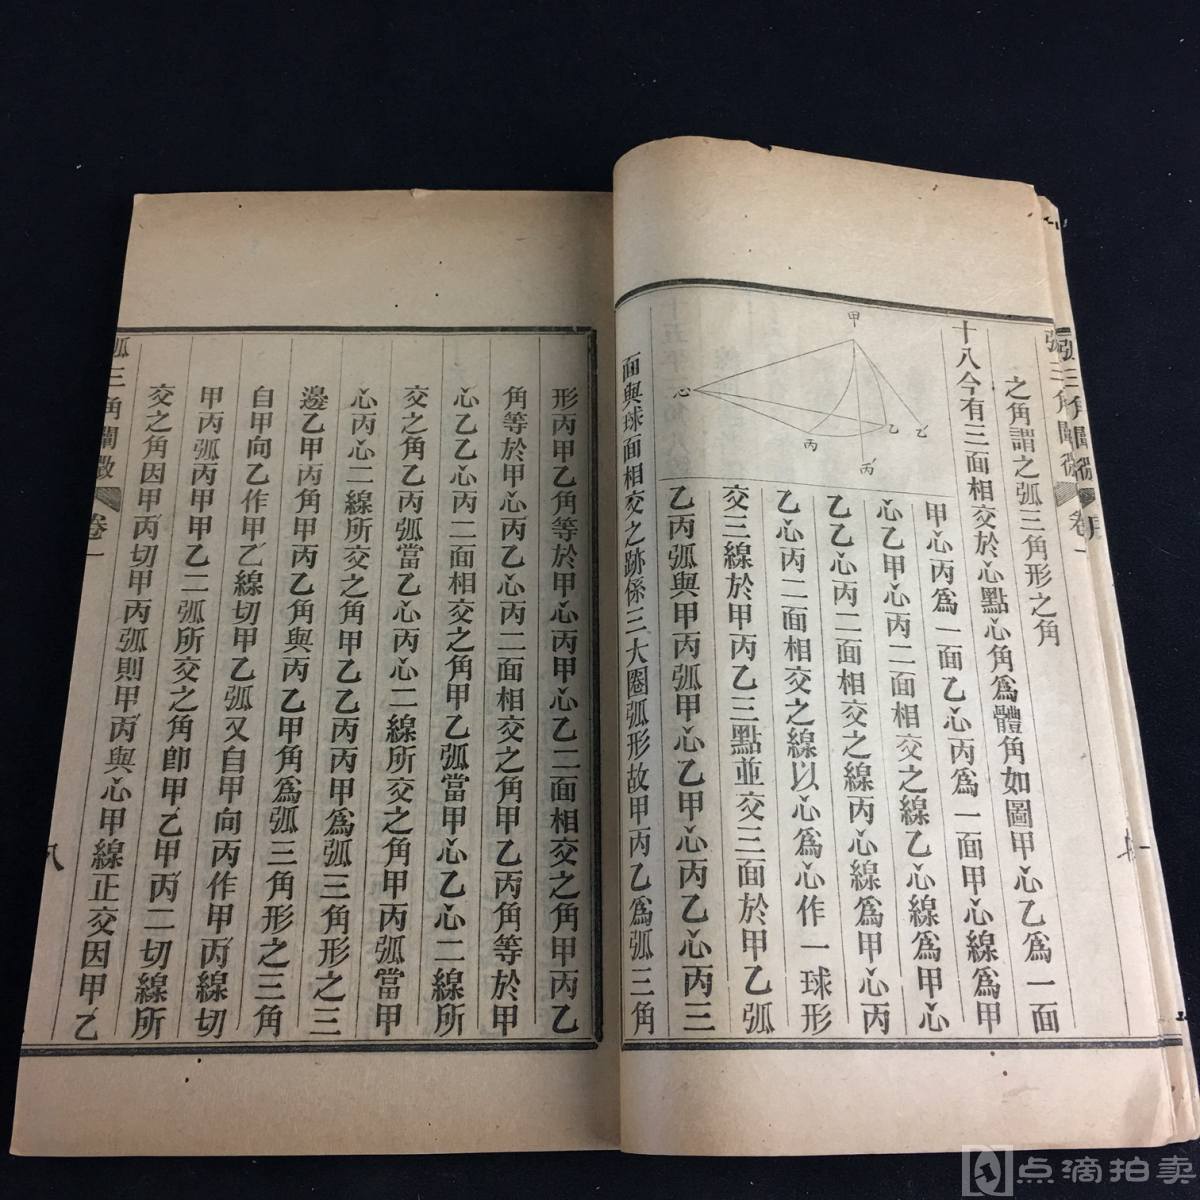 之角謂之弧三角形之角
十八今有三面相交於心點心角爲體角如圖甲心乙爲一面
甲心丙爲一面乙心丙爲一面甲心線爲甲
心乙甲心丙二面相交之線乙心線爲甲心
乙乙心丙二面相交之線丙心線爲甲心丙
乙心丙二面相交之線以心爲心作一球形
交三線於甲丙乙三點並交三面於甲乙弧
乙丙弧與甲丙弧甲心乙甲心丙乙心丙三
面與球面相交之跡係三大圈弧形故甲丙乙爲弧三角
甲
心
丙
乙
乙′
丙′
形丙甲乙角等於甲心丙甲心乙二面相交之角甲丙乙
角等於甲心丙乙心丙二面相交之角甲乙丙角等於甲
心乙乙心丙二面相交之角甲乙弧當甲心乙心二線所
交之角乙丙弧當乙心丙心二線所交之角甲丙弧當甲
心丙心二線所交之角甲乙乙丙丙甲爲弧三角形之三
邊乙甲丙角甲丙乙角與丙乙甲角爲弧三角形之三角
自甲向乙作甲乙′線切甲乙弧又自甲向丙作甲丙′線切
甲丙弧丙甲甲乙二弧所交之角卽甲乙′甲丙′二切線所
交之角因甲丙′切甲丙弧則甲丙′與心甲線正交因甲乙′
弧三角闡微
卷一
八
点滴拍卖